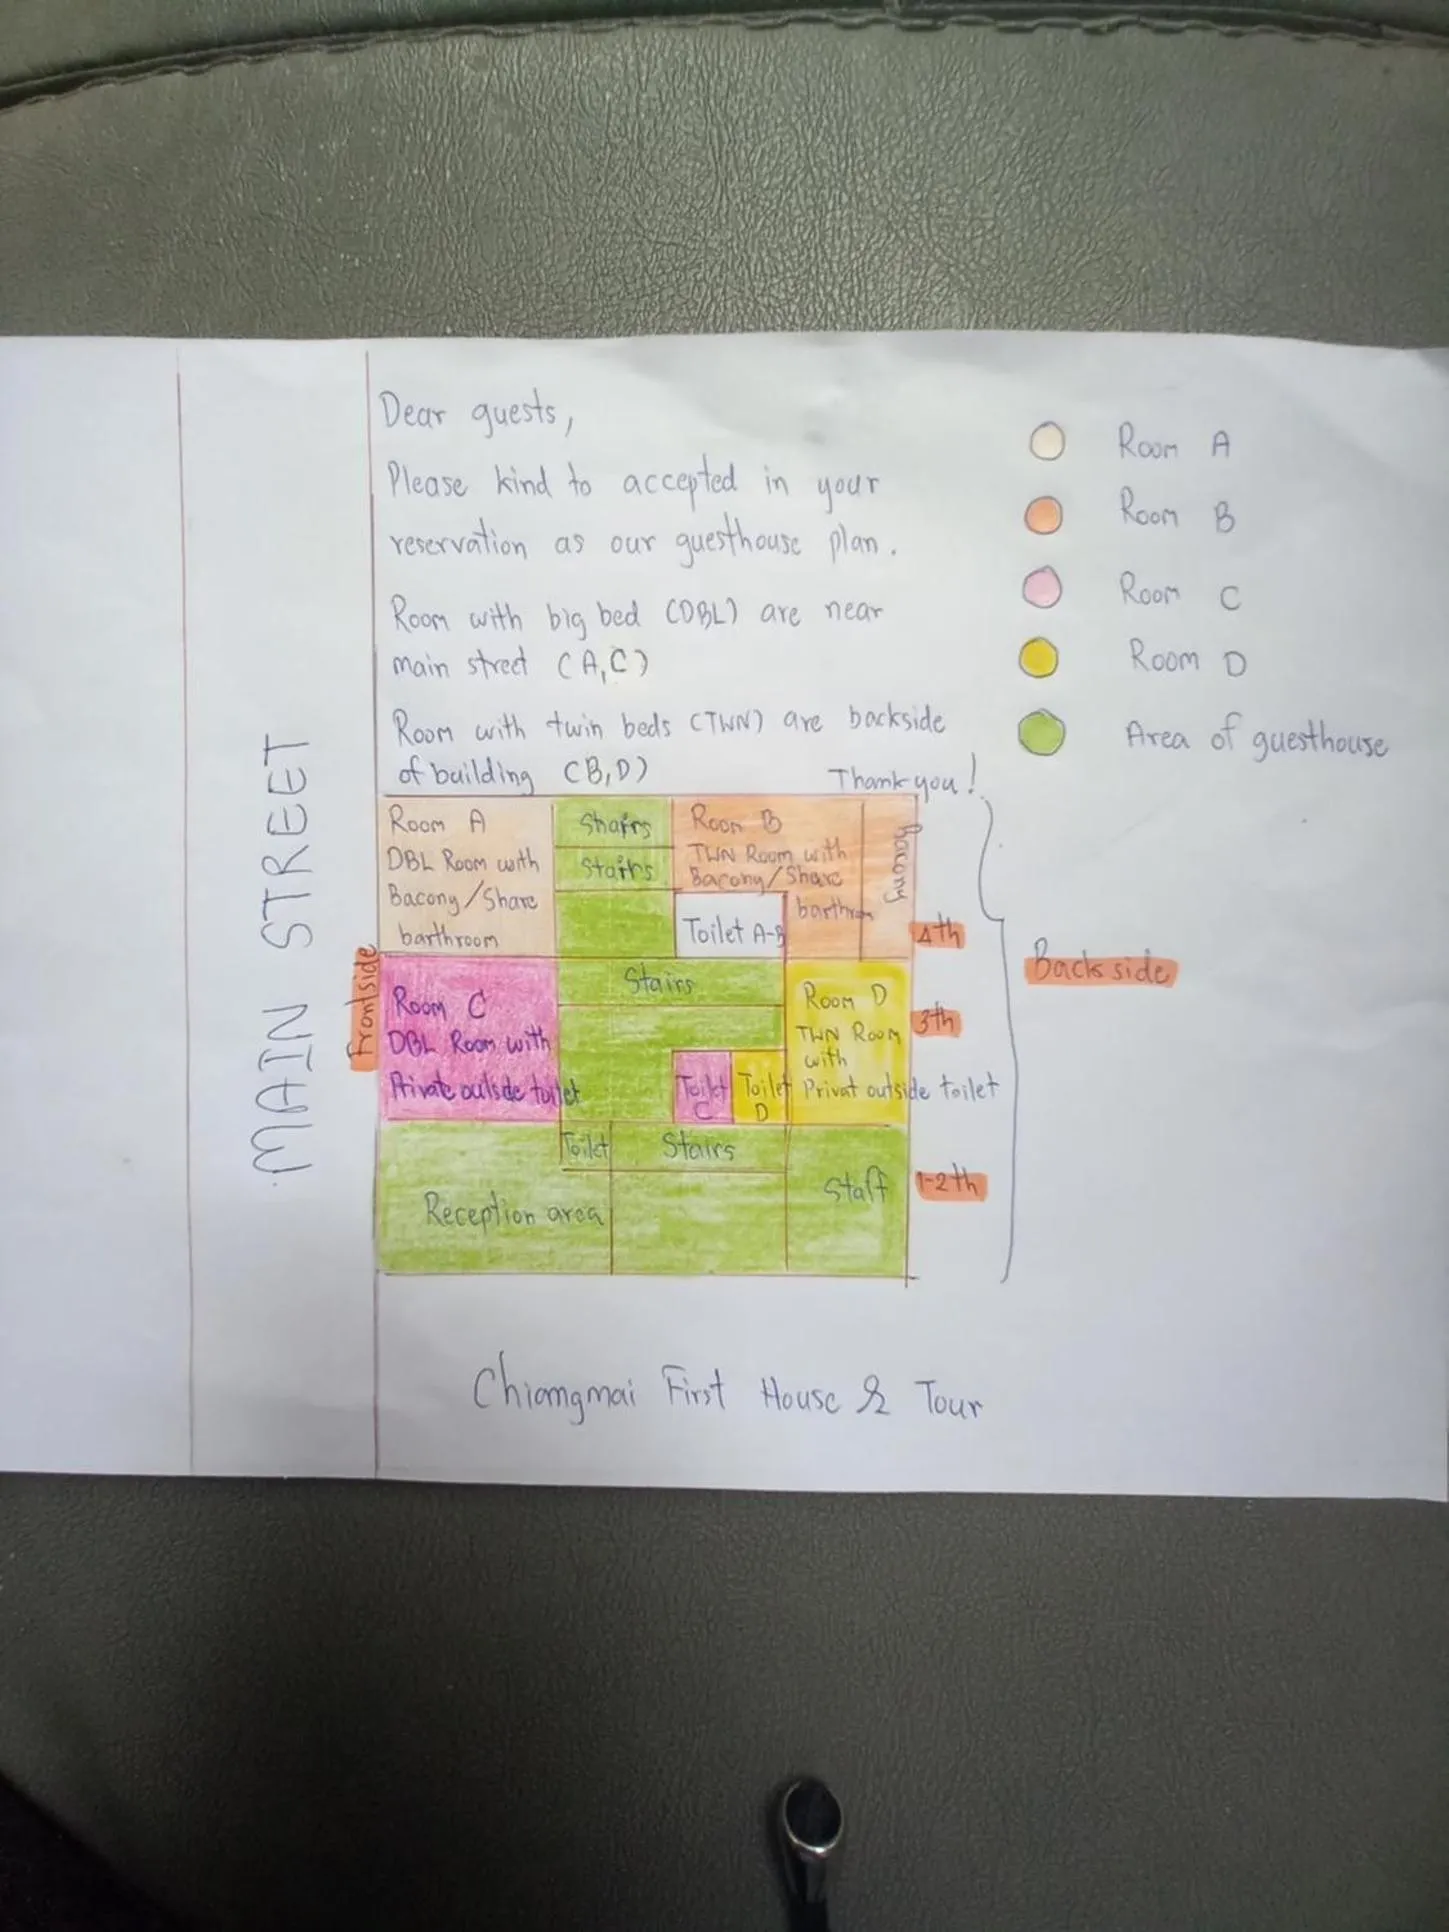 Dear guests,
Please kind to accepted in your
reservation as our guesthouse plan.
Room with big bed (DBL) are near
main street (A,C)
Room with twin beds (TWN) are backside
of building (B,D)
Thank you!
Room A
Room B
Room C
Room D
Area of guesthouse
MAIN STREET
Frontside
Room A
DBL Room with
Bacony/Share
barthroom
Stairs
Stairs
Room B
TWN Room with
Bacony/Share
barthrom
Bacony
Toilet A-B
4th
Room C
DBL Room with
Private outside toilet
Stairs
Toilet
C
Toilet
D
Room D
TWN Room
with
Privat outside toilet
3th
Reception area
Toilet
Stairs
Staff
1-2th
Backside
Chiangmai First House & Tour